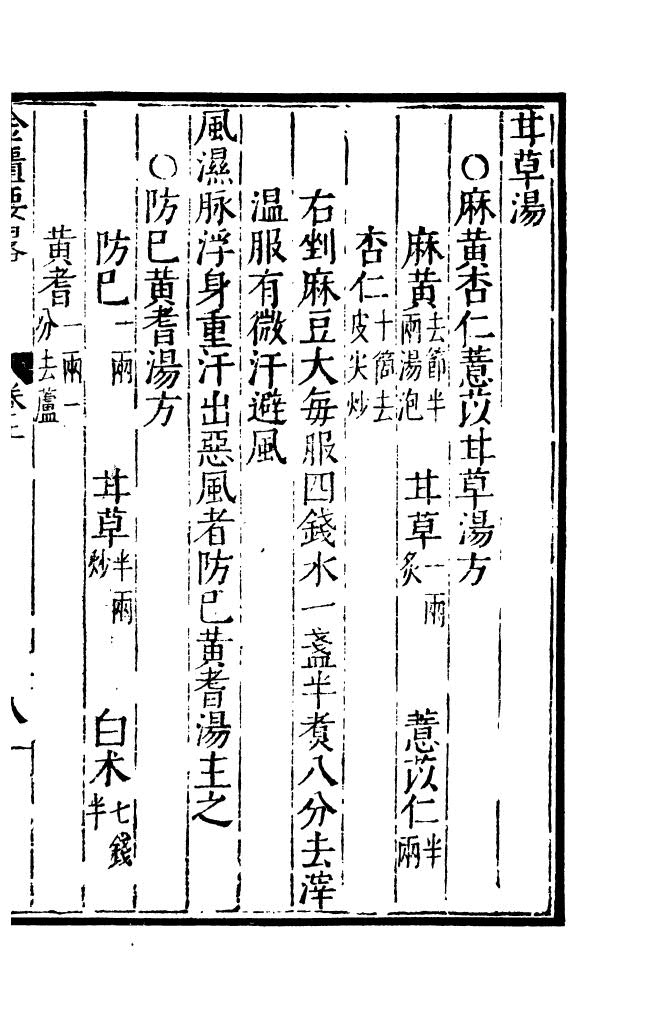 甘草湯
○麻黄杏仁薏苡甘草湯方
麻黄去節半兩湯泡 甘草一兩炙 薏苡仁半兩
杏仁十箇去皮尖炒
右剉麻豆大每服四錢水一盞半煑八分去滓
温服有微汗避風
風濕脉浮身重汗出惡風者防已黄耆湯主之
○防已黄耆湯方
防已一兩 甘草半兩炒 白术七錢半
黄耆一兩一分去蘆
金匱要畧 卷上 八